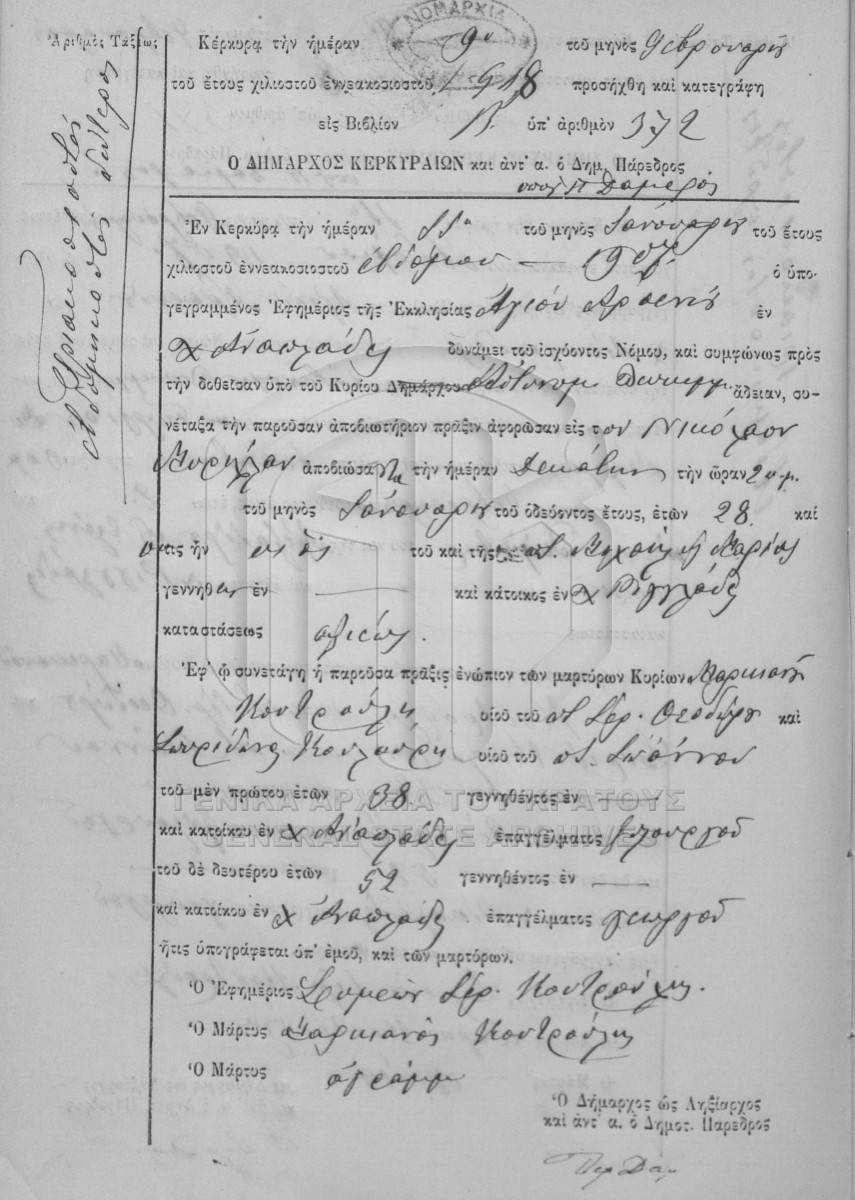 ΝΟΜΑΡΧΙΑ
Ἀριθμὸς Τάξεως
τριακοσιοστός
ἑβδομηκοστός δεύτερος
Κέρκυρα τὴν ἡμέραν 9η τοῦ μηνὸς Φεβρουαρίου
τοῦ ἔτους χιλιοστοῦ ἐννεακοσιοστοῦ 1918 προσήχθη καὶ κατεγράφη
εἰς Βιβλίον ὑπ' ἀριθμὸν 372
Ο ΔΗΜΑΡΧΟΣ ΚΕΡΚΥΡΑΙΩΝ καὶ ἀντ' α. ὁ Δημ. Πάρεδρος
Ἐν Κερκύρᾳ τὴν ἡμέραν 11η τοῦ μηνὸς Ἰανουαρίου τοῦ ἔτους
χιλιοστοῦ ἐννεακοσιοστοῦ ὁ ὑπο-
γεγραμμένος Ἐφημέριος τῆς Ἐκκλησίας Ἁγίου Ἀρσενίου ἐν
χ Ἀναπλάδες δυνάμει τοῦ ἰσχύοντος Νόμου, καὶ συμφώνως πρὸς
τὴν δοθεῖσαν ὑπὸ τοῦ Κυρίου Δημάρχου Ἀστυνομ ἄδειαν, συ-
νέταξα τὴν παροῦσαν ἀποβιωτήριον πρᾶξιν ἀφορῶσαν εἰς τον Νικόλαον
ἀποβιώσαντα τὴν ἡμέραν Δεκάτην τὴν ὥραν 2 μ.μ.
τοῦ μηνὸς Ἰανουαρίου τοῦ ὁδεύοντος ἔτους, ἐτῶν 28 καὶ
οστις ἦν υιὸς τοῦ καὶ τῆς ποτ. Μιχαὴλ ἢ Μαρίας
γεννηθεις ἐν — καὶ κάτοικος ἐν χ
καταστάσεως
Ἐφ' ᾧ συνετάγη ἡ παροῦσα πρᾶξις ἐνώπιον τῶν μαρτύρων Κυρίων Μαρκιανοῦ
Κουτρούλη υἱοῦ τοῦ ποτ. Ἱερ. Θεοδώρου καὶ
Σπυρίδωνος Κουλούρη υἱοῦ τοῦ ποτ. Ἰωάννου
τοῦ μὲν πρώτου ἐτῶν 38 γεννηθέντος ἐν —
καὶ κατοίκου ἐν χ Ἀναπλάδες ἐπαγγέλματος ξυλουργοῦ
τοῦ δὲ δευτέρου ἐτῶν 52 γεννηθέντος ἐν —
καὶ κατοίκου ἐν χ Ἀναπλάδες ἐπαγγέλματος γεωργοῦ
ἥτις ὑπογράφεται ὑπ' ἐμοῦ, καὶ τῶν μαρτύρων.
Ὁ Ἐφημέριος Ἱερ. Κουτρούλης.
Ὁ Μάρτυς Μαρκιανὸς Κουτρούλης
Ὁ Μάρτυς ἀγράμμ
Ὁ Δήμαρχος ὡς Ληξίαρχος
καὶ ἀντ' α. ὁ Δημοτ. Πάρεδρος
ΓΕΝΙΚΑ ΑΡΧΕΙΑ ΤΟΥ ΚΡΑΤΟΥΣ
GENERAL STATE ARCHIVES